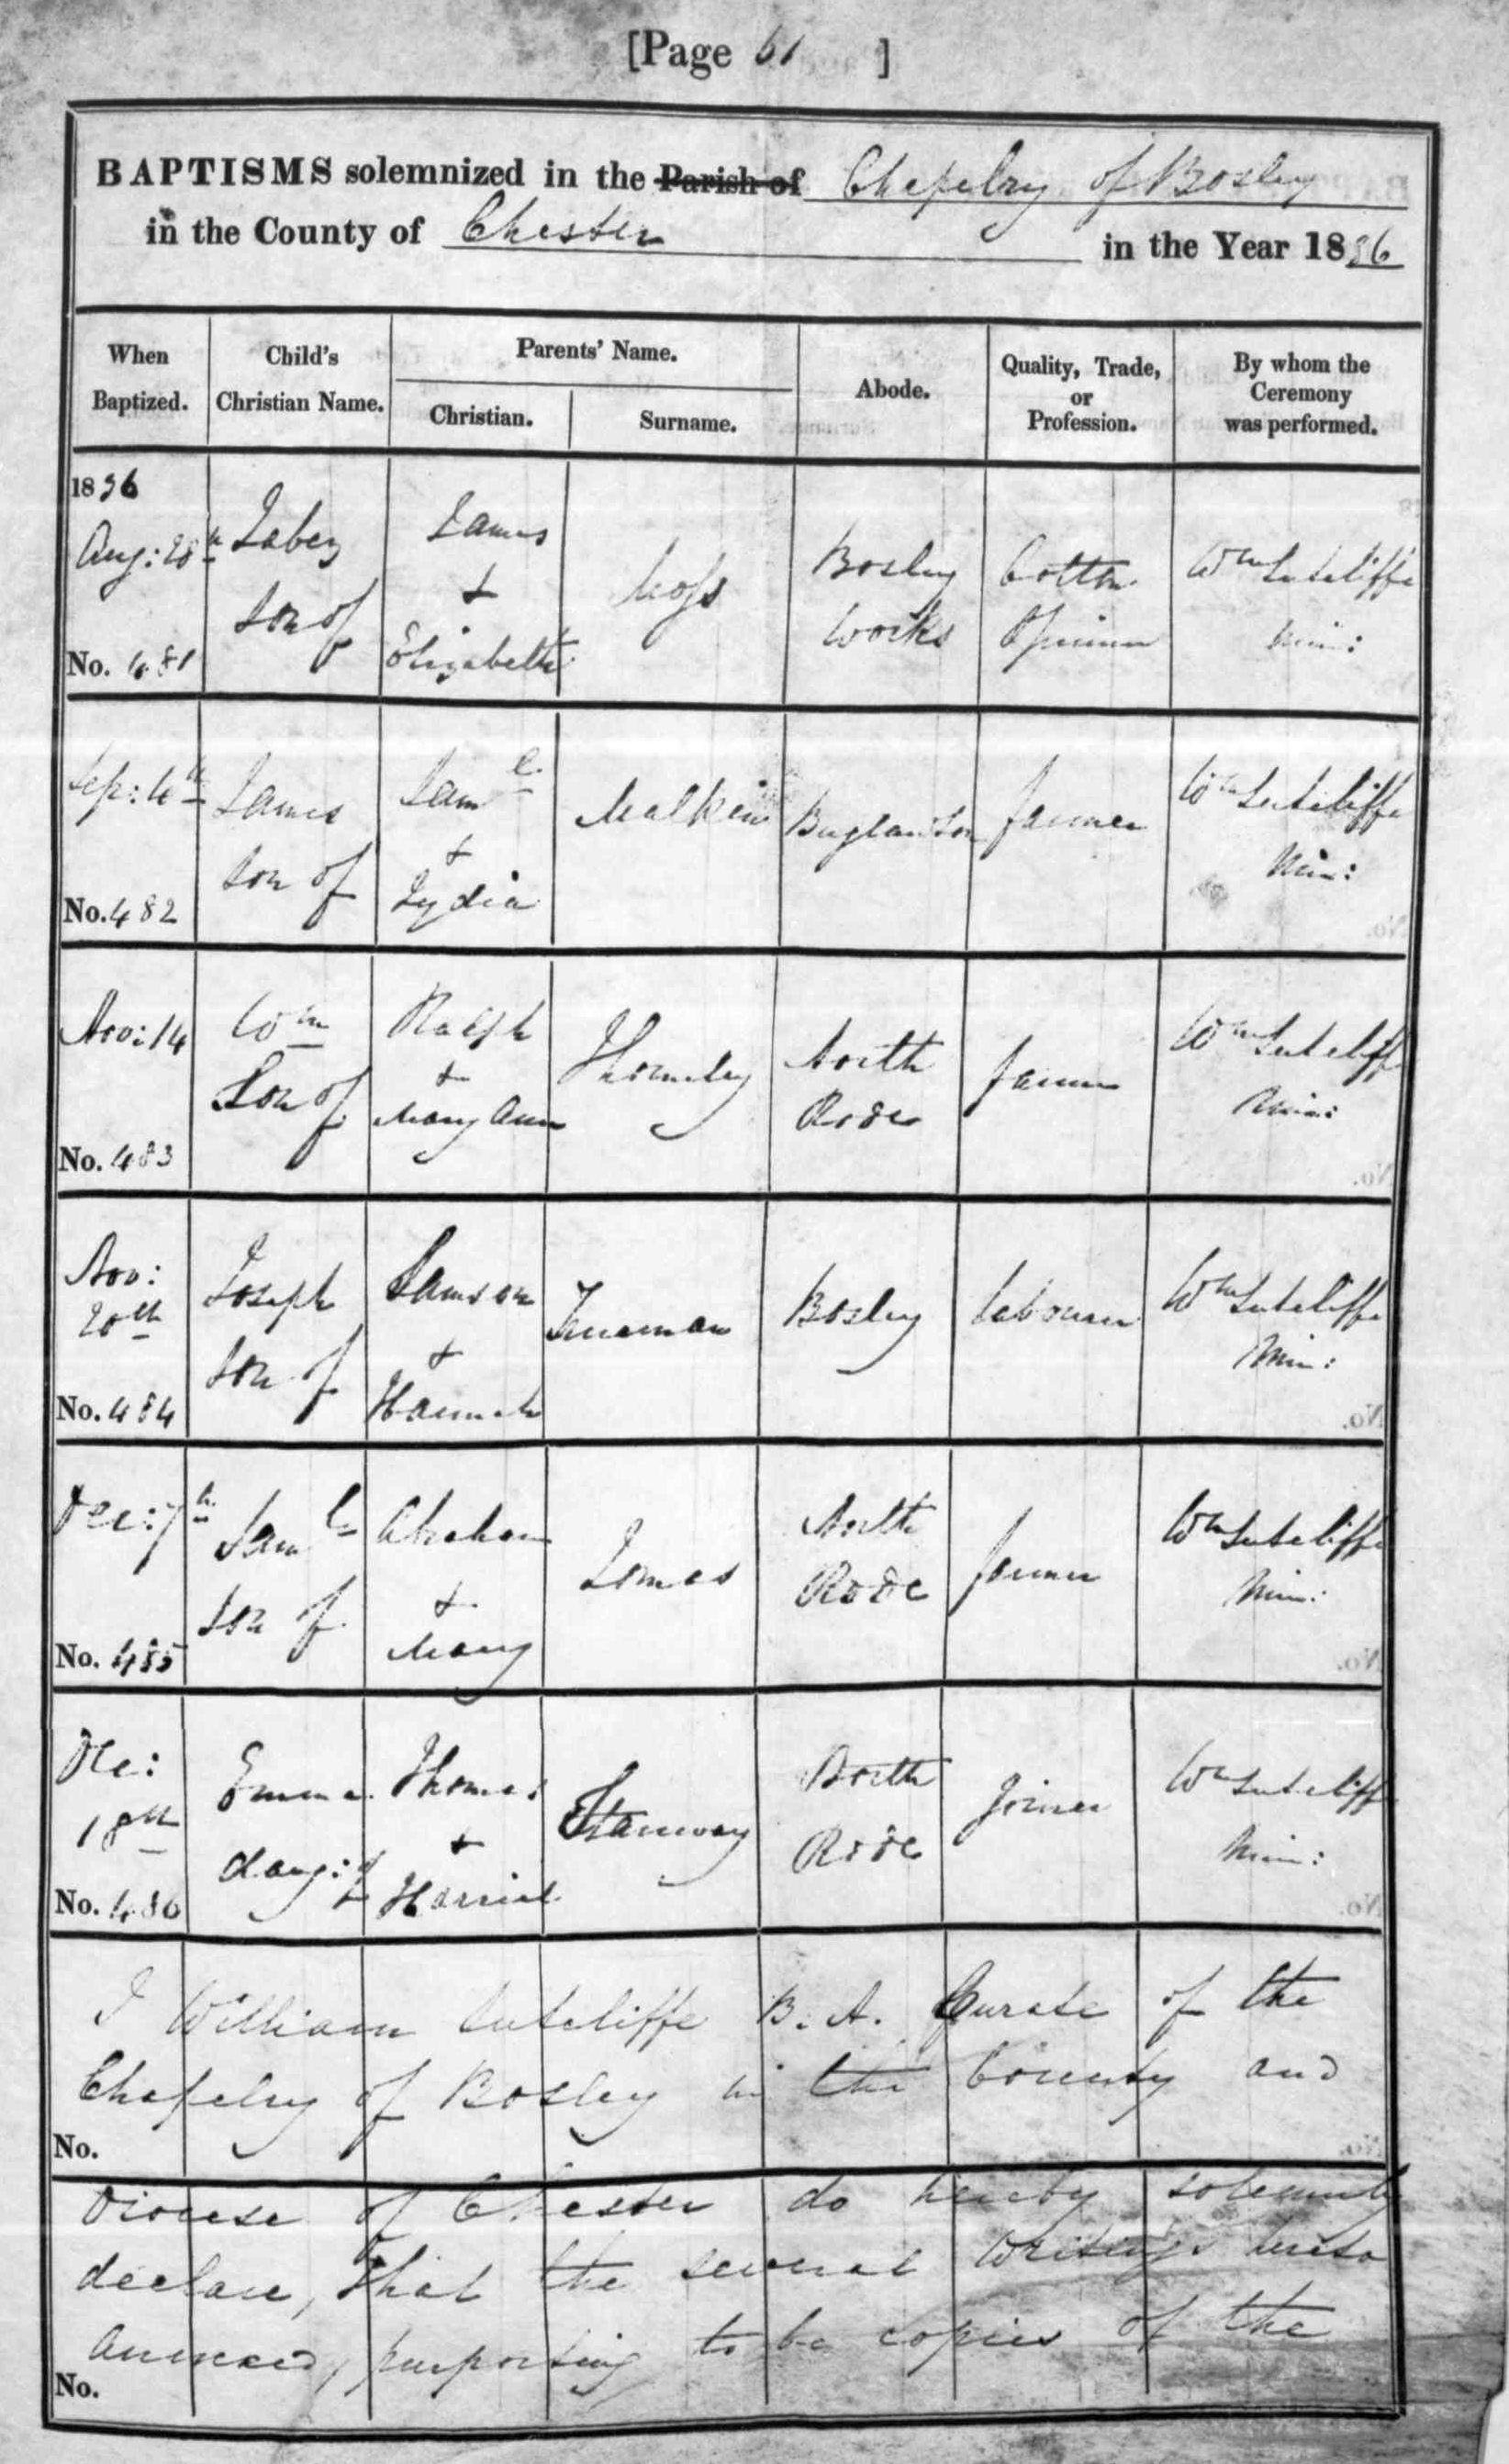 [Page 61 ]
BAPTISMS solemnized in the Parish of Chapelry of Bosley
in the County of Chester in the Year 1836
When Baptized.
Child's Christian Name.
Parents' Name.
Christian.
Surname.
Abode.
Quality, Trade, or Profession.
By whom the Ceremony was performed.
1836
Aug: 28th
No. 481
Jabez
Son of
James
+
Elizabeth
Moss
Bosley
Works
Cotton
Spinner
Wm Sutcliffe
Min:
Sep: 4th
No. 482
James
Son of
Saml
+
Lydia
Malkin
Buglawton
farmer
Wm Sutcliffe
Min:
Nov: 14
No. 483
Wm
Son of
Ralph
+
Mary Ann
Thornley
North
Rode
farmer
Wm Sutcliffe
Min:
Nov:
20th
No. 484
Joseph
Son of
Samson
+
Hannah
Bosley
labourer
Wm Sutcliffe
Min:
Dec: 7th
No. 485
Saml
Son of
Abraham
+
Mary
Lomas
North
Rode
farmer
Wm Sutcliffe
Min:
Dec:
18th
No. 486
Emma
daug: of
Thomas
+
Harriet
Stanway
North
Rode
Joiner
Wm Sutcliffe
Min:
I William Sutcliffe B. A. Curate of the
Chapelry of Bosley in the County and
No.
Diocese of Chester do hereby solemnly
declare, that the several writings hereto
annexed, purporting to be copies of the
No.